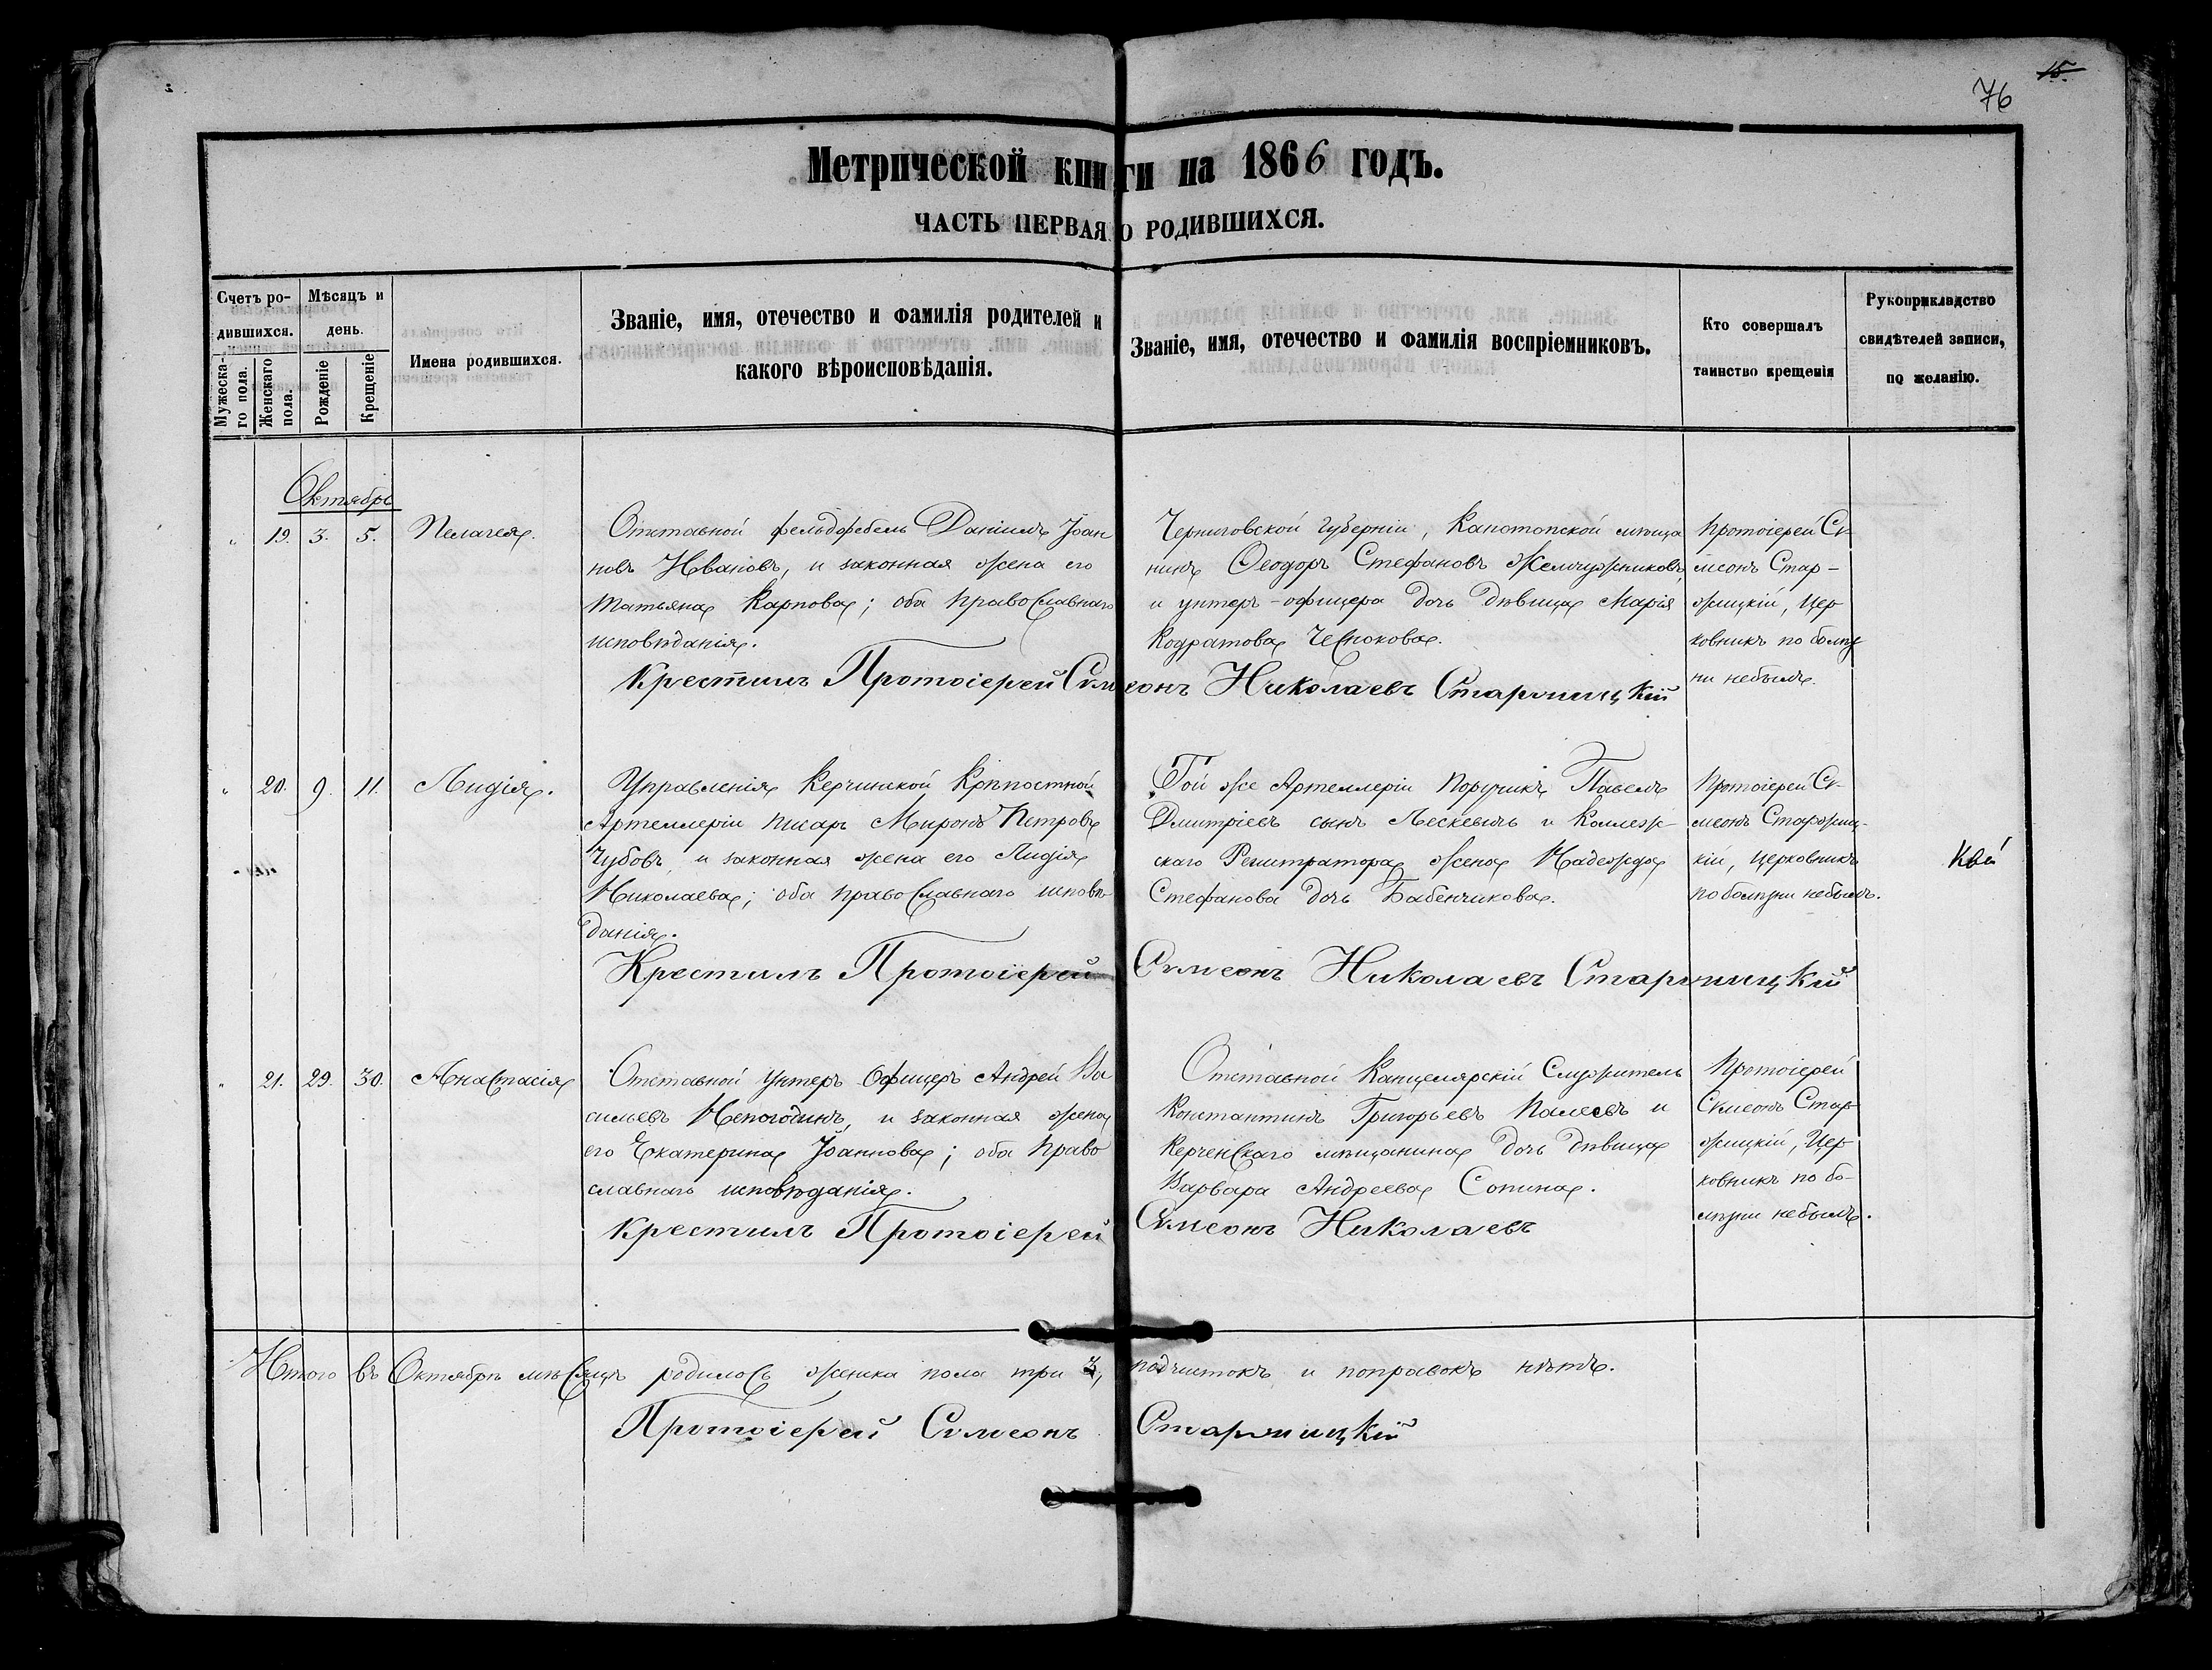 15
76
Метрической книги на 1866 годъ.
ЧАСТЬ ПЕРВАЯ О РОДИВШИХСЯ.
Счетъ ро-
дившихся.
Мужеска-
го пола.
Женскаго
пола.
Мѣсяцъ и
день.
Рожденіе
Крещеніе
Имена родившихся.
Званіе, имя, отечество и фамилія родителей и
какого вѣроисповѣданія.
Званіе, имя, отечество и фамилія воспріемниковъ.
Кто совершалъ
таинство крещенія
Рукоприкладство
свидѣтелей записи,
по желанію.
Октябрь
" 19. 3. 5. Пелагея.
Отставной фельдфебель Даніилъ Іоан
новъ Ивановъ, и законная жена его
Татьяна Карпова; оба православнаго
исповѣданія.
Черниговской губерніи, Канотопской мѣща
нинъ Ѳеодоръ Стефановъ Жемчужниковъ,
и унтеръ-офицера дочь дѣвица Марія
Кодратова Чеснокова.
Протоіерей Си-
меонъ Стар-
жицкій, Цер
ковникъ по болѣз
ни небылъ.
Крестилъ Протоіерей Симеонъ Николаевъ Старжицкій
" 20. 9. 11. Лидія.
Управленія Керчинской Крѣпостной
Артеллеріи писарь Миронъ Петровъ
Чубовъ, и законная жена его Лидія
Николаева; оба православнаго исповѣ-
данія.
Той же Артеллеріи Поручикъ Павелъ
Дмитріевъ сынъ Лескевичъ и Коллеж-
скаго Регитратора жена Надежда
Стефанова дочь Бабенчикова.
Протоіерей Си-
меонъ Старжиц-
кій, церковникъ
по болѣзни небылъ.
Крестилъ Протоіерей Симеонъ Николаевъ Старжицкій
" 21. 29. 30. Анастасія
Отставной Унтеръ-Офицеръ Андрей Ва
сильевъ Непогодинъ, и законная жена
его Екатерина Іоаннова; оба право
славнаго исповѣданія.
Отставной Канцелярскій Служитель
Константинъ Григорьевъ Палеевъ и
Керченскаго мѣщанина дочь дѣвица
Варвара Андреева Сопина.
Протоіерей
Симеонъ Стар-
жицкій, Цер-
ковникъ по бо-
лѣзни небылъ.
Крестилъ Протоіерей Симеонъ Николаевъ
Итого въ Октябрѣ мѣсяцѣ родилось женска пола три 3, подчистокъ и поправокъ нѣтъ.
Протоіерей Симеонъ Старжицкій